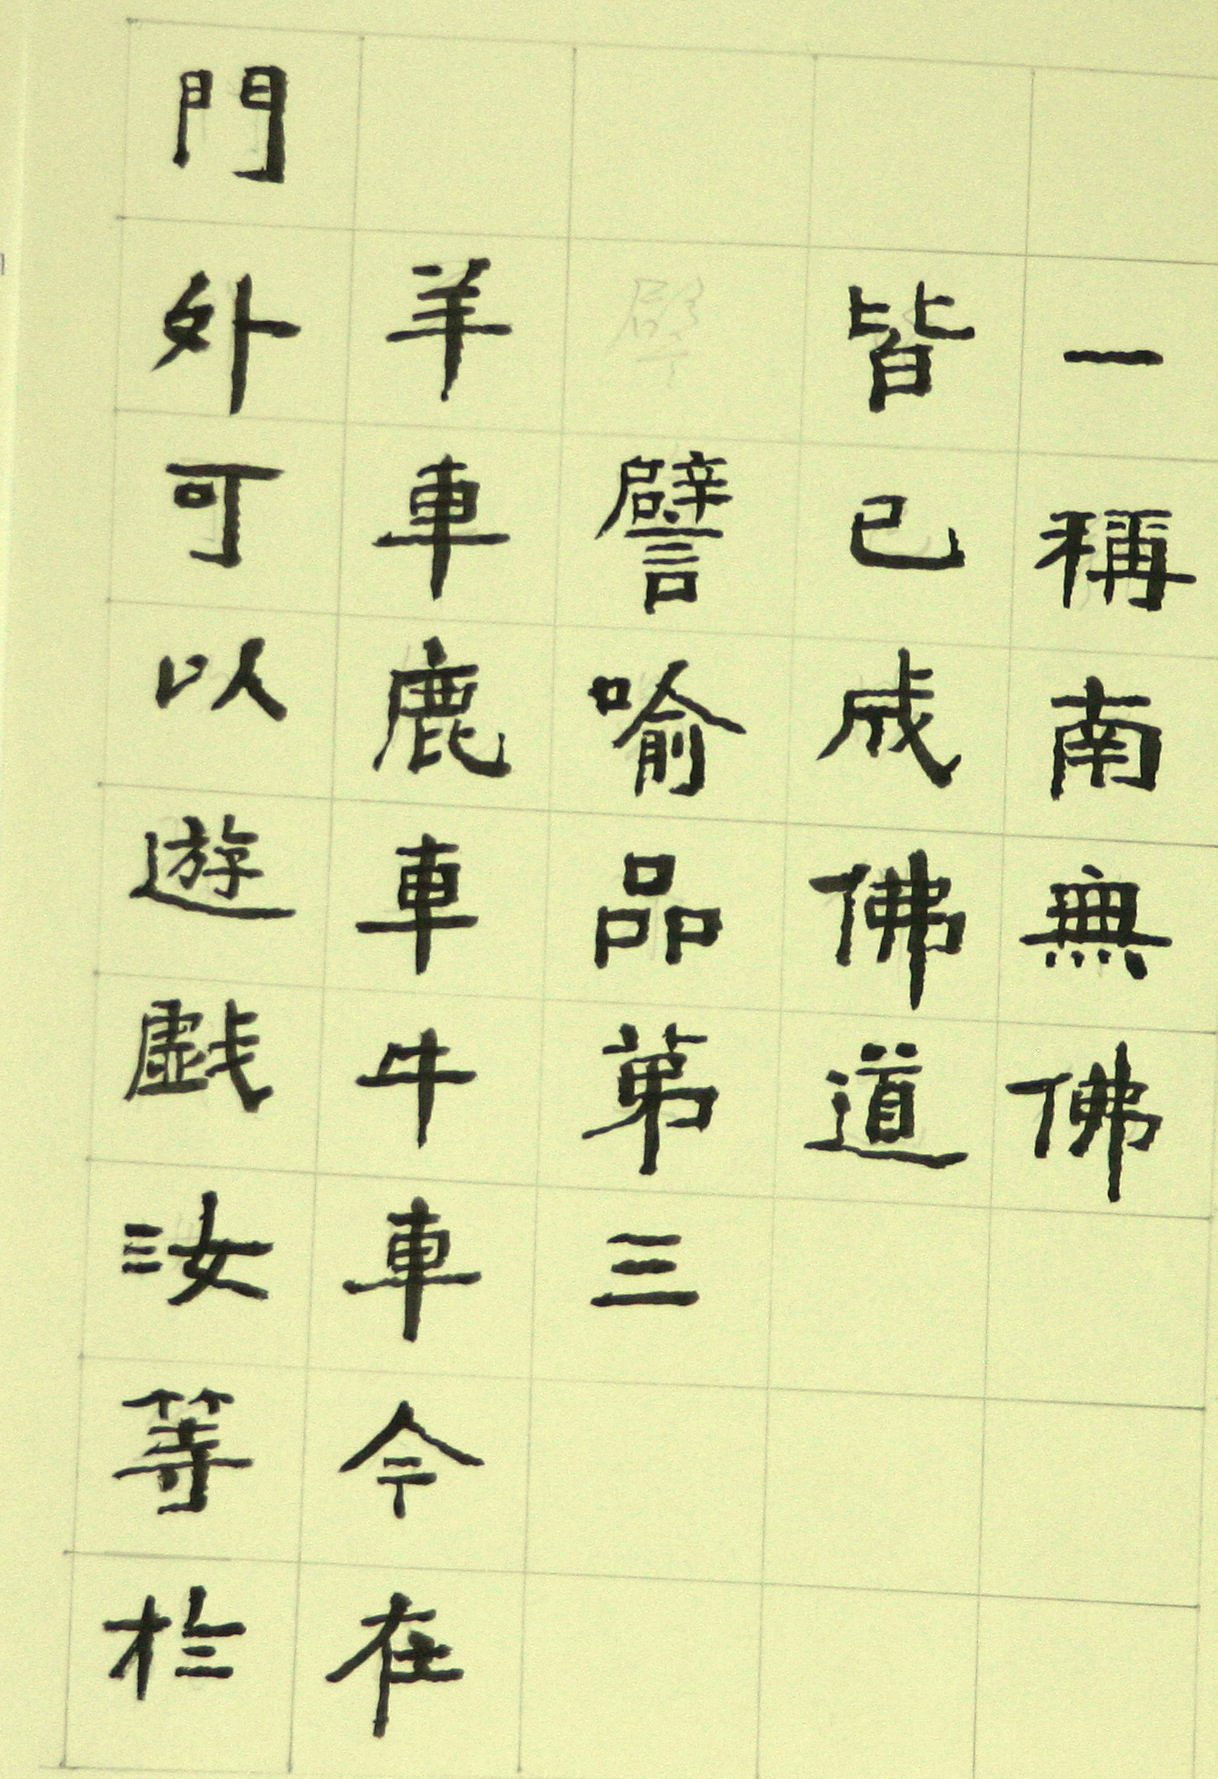 一稱南無佛
皆已成佛道
譬喻品第三
羊車鹿車牛車今在
門外可以遊戯汝等於